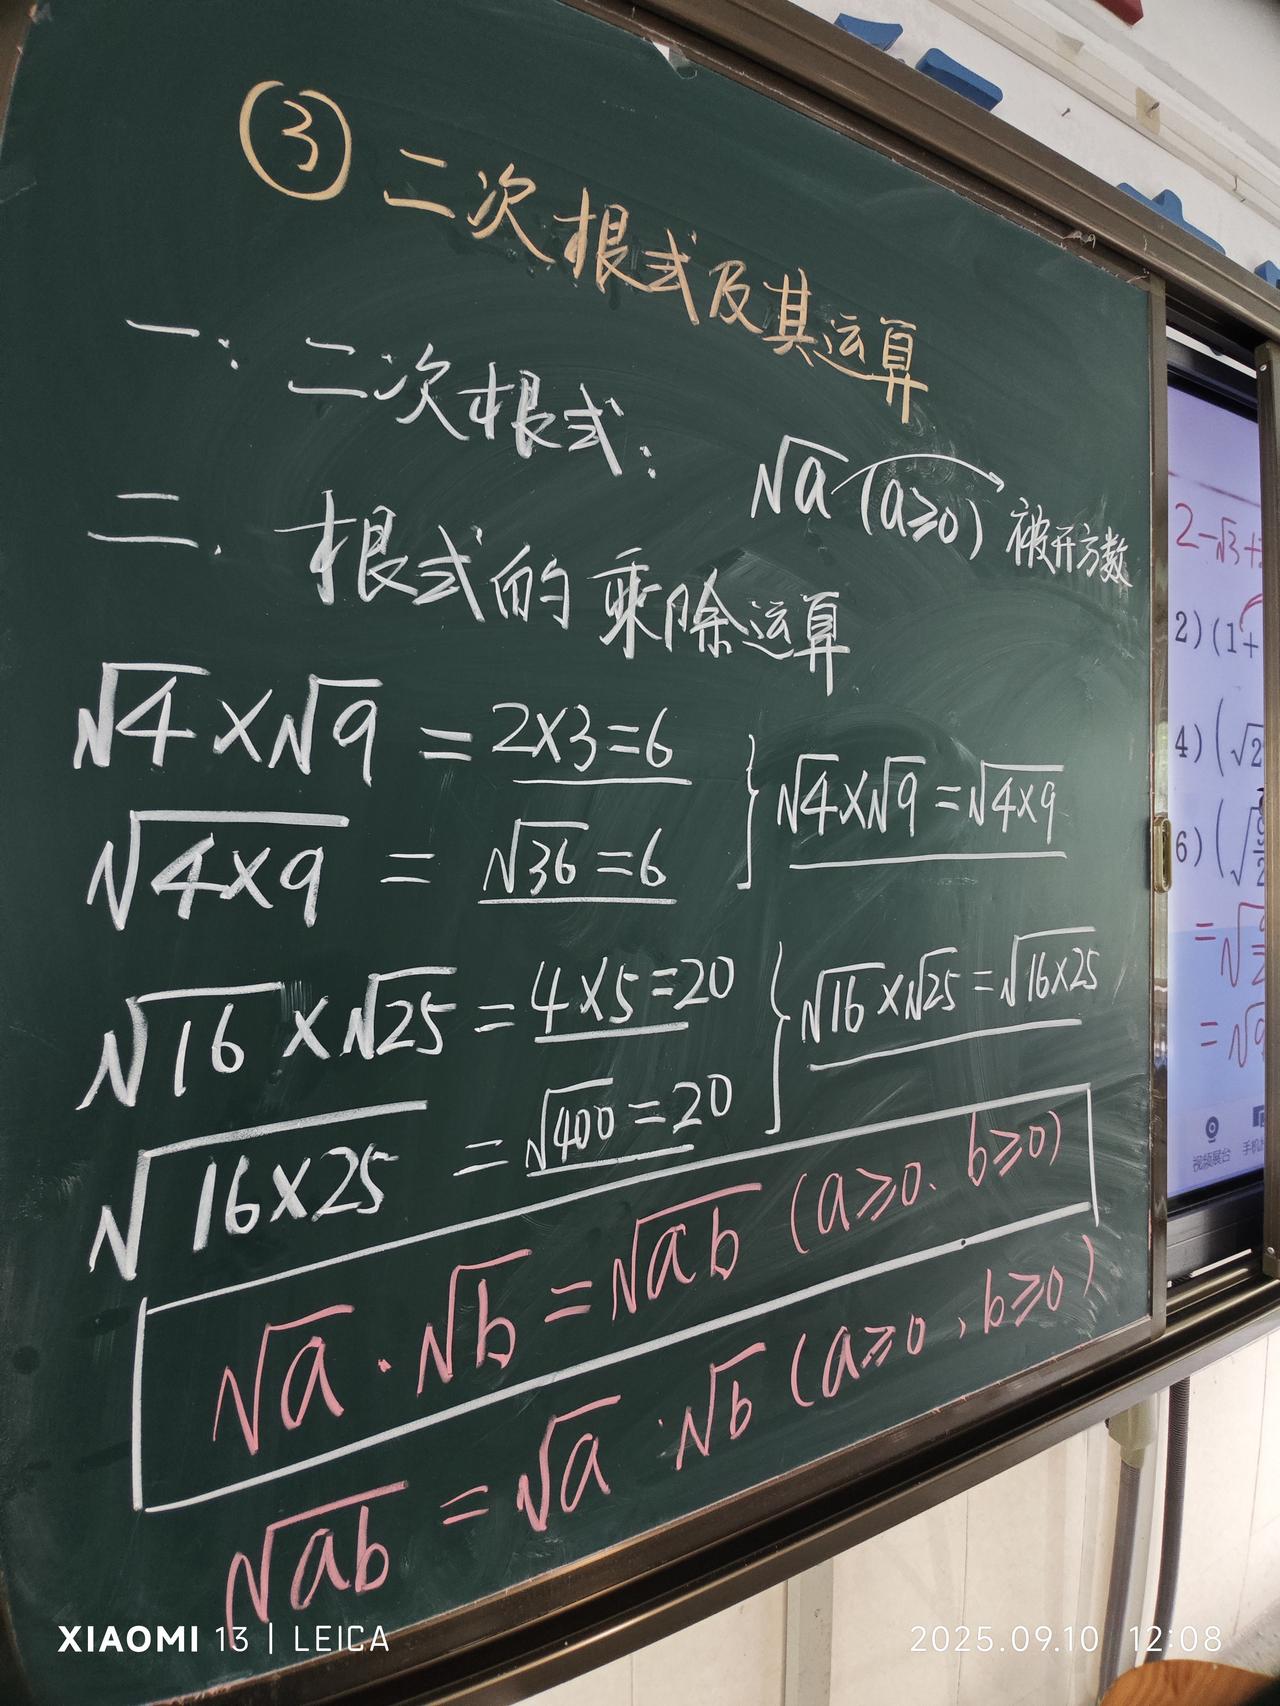 ③ 二次根式及其运算
一: 二次根式: √a (a≥0) 被开方数
二. 根式的乘除运算
√4 × √9 = 2×3=6
√4×9 = √36 = 6
√4×√9 = √4×9
√16 × √25 = 4×5=20
√16×25 = √400 = 20
√16×√25 = √16×25
√a · √b = √ab (a≥0、b≥0)
√ab = √a · √b (a≥0, b≥0)
2-√3+
2) (1+
4) (√2
6) (√
=√
=√9
视频展台 手机
XIAOMI 13 | LEICA
2025.09.10 12:08